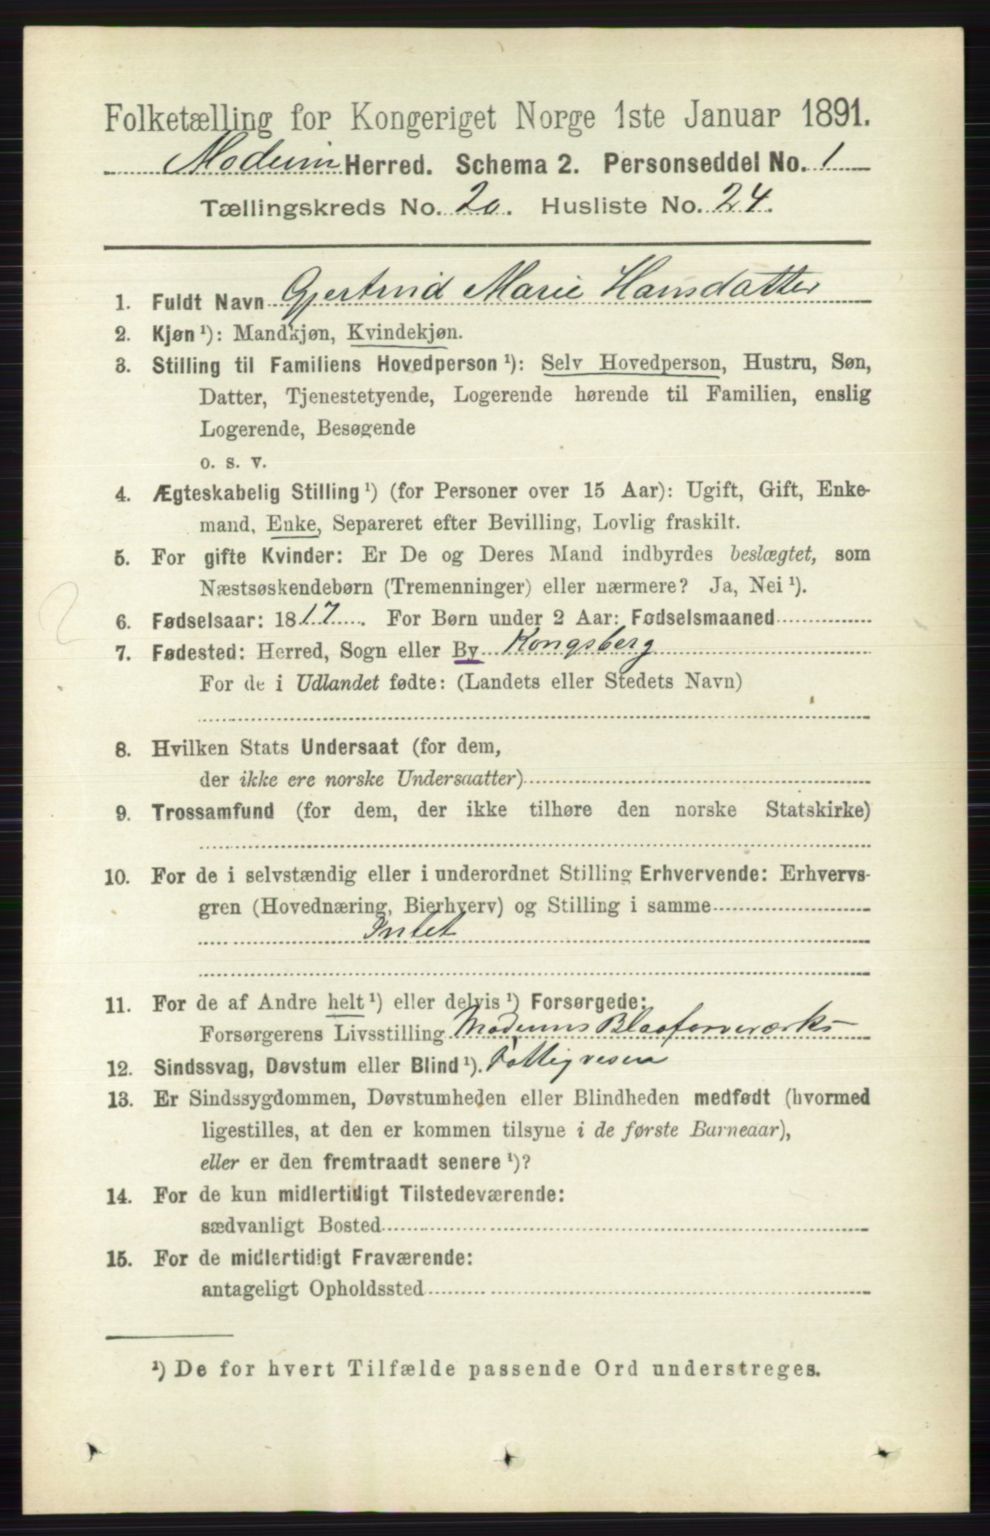 Folketælling for Kongeriget Norge 1ste Januar 1891.
Modum Herred. Schema 2. Personseddel No. 1
Tællingskreds No. 20. Husliste No. 24.
1. Fuldt Navn Gjertrud Marie Hansdatter
2. Kjøn ¹): Mandkjøn, Kvindekjøn.
3. Stilling til Familiens Hovedperson ¹): Selv Hovedperson, Hustru, Søn,
Datter, Tjenestetyende, Logerende hørende til Familien, enslig
Logerende, Besøgende
o. s. v.
4. Ægteskabelig Stilling ¹) (for Personer over 15 Aar): Ugift, Gift, Enke-
mand, Enke, Separeret efter Bevilling, Lovlig fraskilt.
5. For gifte Kvinder: Er De og Deres Mand indbyrdes beslægtet, som
Næstsøskendebørn (Tremenninger) eller nærmere? Ja, Nei ¹).
6. Fødselsaar: 1817. For Børn under 2 Aar: Fødselsmaaned
7. Fødested: Herred, Sogn eller By Kongsberg
For de i Udlandet fødte: (Landets eller Stedets Navn)
8. Hvilken Stats Undersaat (for dem,
der ikke ere norske Undersaatter)
9. Trossamfund (for dem, der ikke tilhøre den norske Statskirke)
10. For de i selvstændig eller i underordnet Stilling Erhvervende: Erhvervs-
gren (Hovednæring, Bierhverv) og Stilling i samme
Intet
11. For de af Andre helt ¹) eller delvis ¹) Forsørgede:
Forsørgerens Livsstilling Modums Blaafarveværks
12. Sindssvag, Døvstum eller Blind ¹). Fattigvesen
13. Er Sindssygdommen, Døvstumheden eller Blindheden medfødt (hvormed
ligestilles, at den er kommen tilsyne i de første Barneaar),
eller er den fremtraadt senere ¹)?
14. For de kun midlertidigt Tilstedeværende:
sædvanligt Bosted
15. For de midlertidigt Fraværende:
antageligt Opholdssted
¹) De for hvert Tilfælde passende Ord understreges.
2